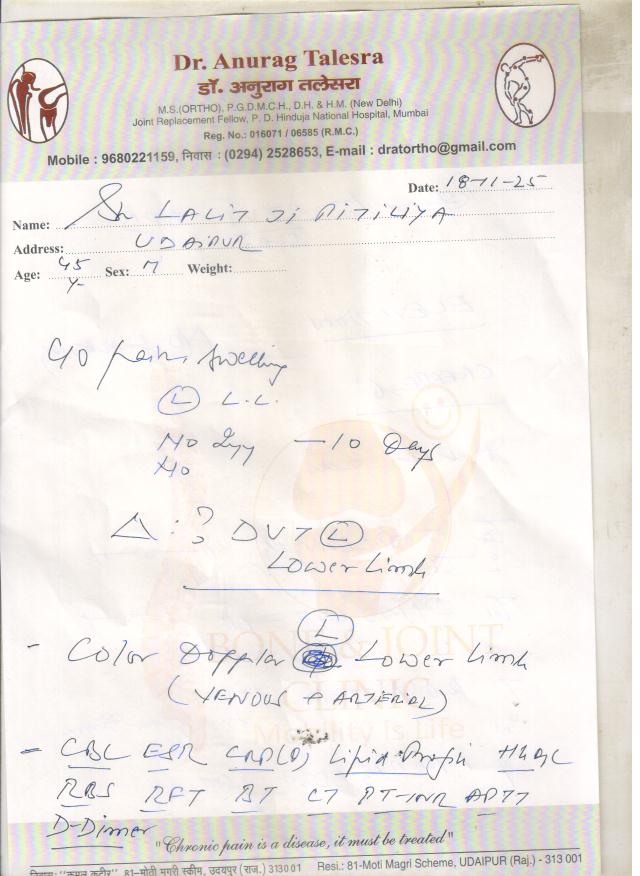 Dr. Anurag Talesra
डॉ. अनुराग तलेसरा
M.S.(ORTHO), P.G.D.M.C.H., D.H. & H.M. (New Delhi)
Joint Replacement Fellow, P. D. Hinduja National Hospital, Mumbai
Reg. No.: 016071 / 06585 (R.M.C.)
Mobile : 9680221159, निवास : (0294) 2528653, E-mail : dratortho@gmail.com
Date: 18-11-25
Name: Sh LALIT JI PITILIYA
Address: UDAIPUR
Age: 45 Y- Sex: M Weight:
C/O Pain, Swelling
(L) L.L.
No Injy — 10 Days
H/o
Δ : ? DVT (L)
Lower Limb
(L)
- Color Doppler Lower Limb
(VENOUS & ARTERIAL)
BONE & JOINT
CLINIC
Mobility is Life
- CBC ESR CRP(Q) Lipid Profile HbA1C
RBS RFT BT CT PT-INR APTT
D-Dimer
"Chronic pain is a disease, it must be treated"
निवास: "कमल कुटीर" 81-मोती मगरी स्कीम, उदयपुर (राज.) 313001 Resi.: 81-Moti Magri Scheme, UDAIPUR (Raj.) - 313 001